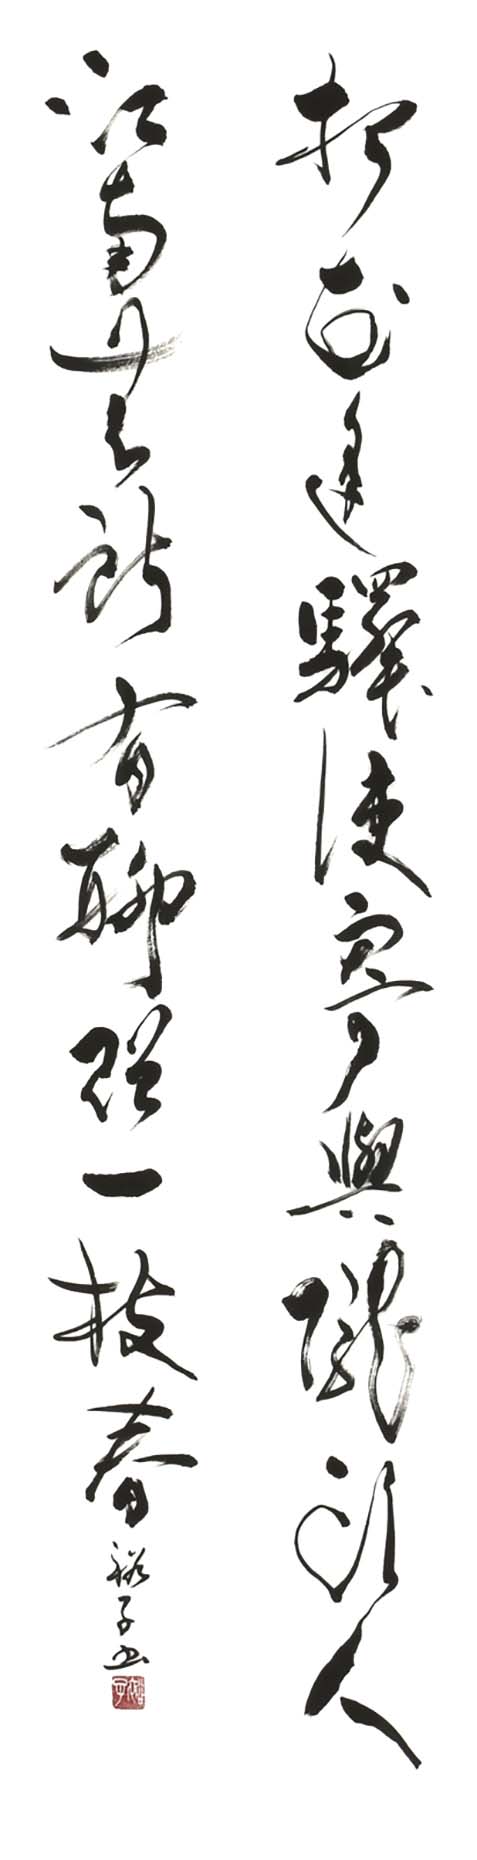 折花逢驛使寄與隴頭人
江南無所有聊贈一枝春
裕子書